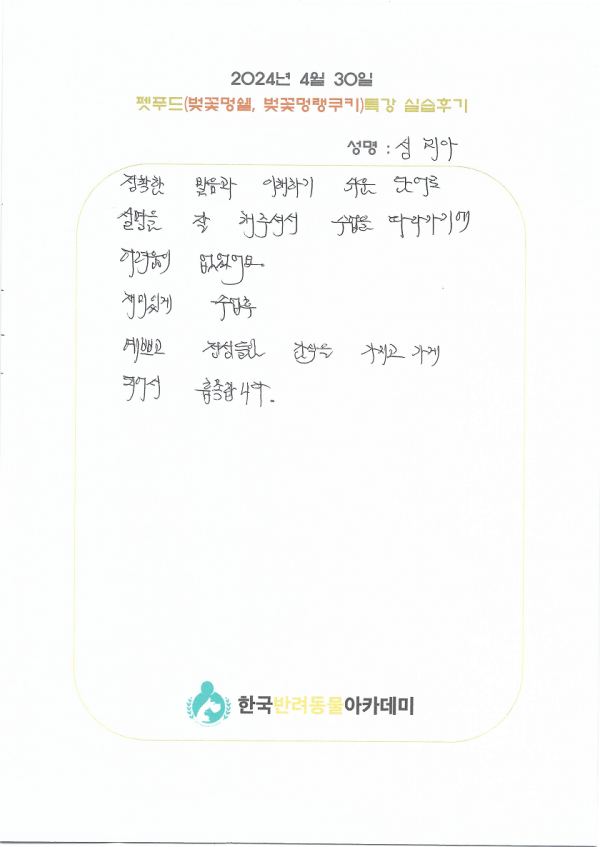 2024년 4월 30일
펫푸드(벚꽃멍쉘, 벚꽃멍랭쿠키)특강 실습후기
성명 : 심 지아
정확한 발음과 이해하기 쉬운 단어로
설명을 잘 해주셔서 수업을 따라가기에
어려움이 없었어요.
재미있게 수업후
예쁘고 정성들인 간식을 가지고 가게
되어서 흡족합니다.
한국반려동물아카데미